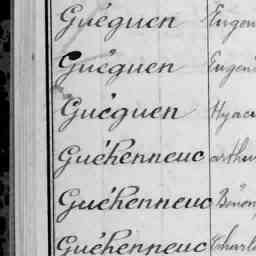 Guéguen Eugen
Guéguen Eugen
Guéguen Hyac
Guéhenneuc arthu
Guéhenneuc Bénon
Guéhenneuc Charle